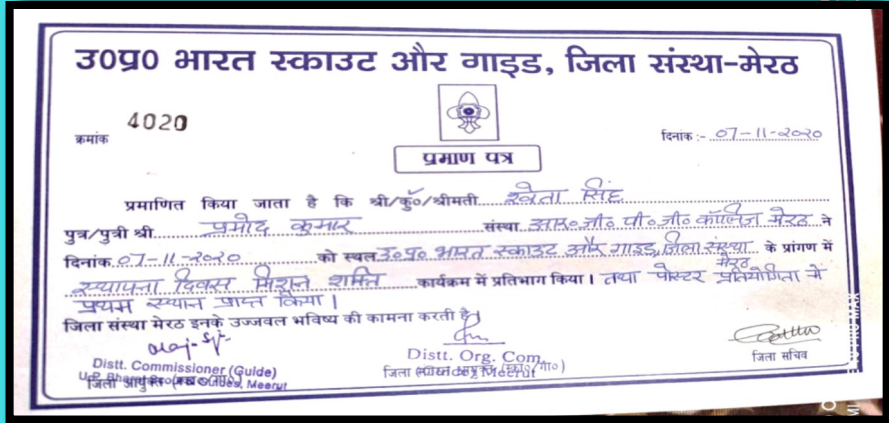 उ०प्र० भारत स्काउट और गाइड, जिला संस्था-मेरठ
क्रमांक 4020
दिनांक :- 07-11-2020
प्रमाण पत्र
प्रमाणित किया जाता है कि श्री/कु०/श्रीमती श्वेता सिंह
पुत्र/पुत्री श्री प्रमोद कुमार संस्था आर० जी० पी० जी० कॉलिज मेरठ ने
दिनांक 07-11-2020 को स्थल उ०प्र० भारत स्काउट और गाइड, जिला संस्था मेरठ के प्रांगण में
स्थापना दिवस मिशन शक्ति कार्यक्रम में प्रतिभाग किया। तथा पोस्टर प्रतियोगिता में
प्रथम स्थान प्राप्त किया।
जिला संस्था मेरठ इनके उज्जवल भविष्य की कामना करती है।
Distt. Commissioner (Guide)
Distt. Org. Com.
जिला सचिव